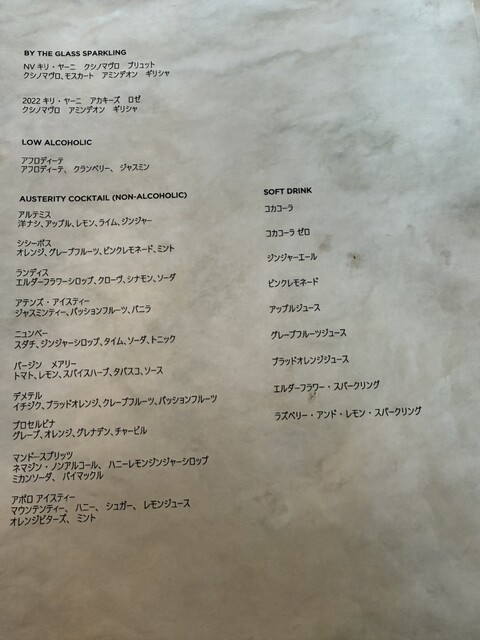 BY THE GLASS SPARKLING
NV キリ・ヤーニ クシノマヴロ ブリュット
クシノマヴロ、モスカート アミンデオン ギリシャ
2022 キリ・ヤーニ アカキーズ ロゼ
クシノマヴロ アミンデオン ギリシャ
LOW ALCOHOLIC
アフロディーテ
アフロディーテ、クランベリー、ジャスミン
AUSTERITY COCKTAIL (NON-ALCOHOLIC)
アルテミス
洋ナシ、アップル、レモン、ライム、ジンジャー
シシーポス
オレンジ、グレープフルーツ、ピンクレモネード、ミント
ランディス
エルダーフラワーシロップ、クローヴ、シナモン、ソーダ
アテンズ・アイスティー
ジャスミンティー、パッションフルーツ、バニラ
ニュンペー
スダチ、ジンジャーシロップ、タイム、ソーダ、トニック
バージン メアリー
トマト、レモン、スパイスハーブ、タバスコ、ソース
デメテル
イチジク、ブラッドオレンジ、グレープフルーツ、パッションフルーツ
プロセルピナ
グレープ、オレンジ、グレナデン、チャービル
マンドースプリッツ
ネマジン・ノンアルコール、ハニーレモンジンジャーシロップ
ミカンソーダ、バイマックル
アポロ アイスティー
マウンテンティー、ハニー、シュガー、レモンジュース
オレンジビターズ、ミント
SOFT DRINK
コカコーラ
コカコーラ ゼロ
ジンジャーエール
ピンクレモネード
アップルジュース
グレープフルーツジュース
ブラッドオレンジジュース
エルダーフラワー・スパークリング
ラズベリー・アンド・レモン・スパークリング